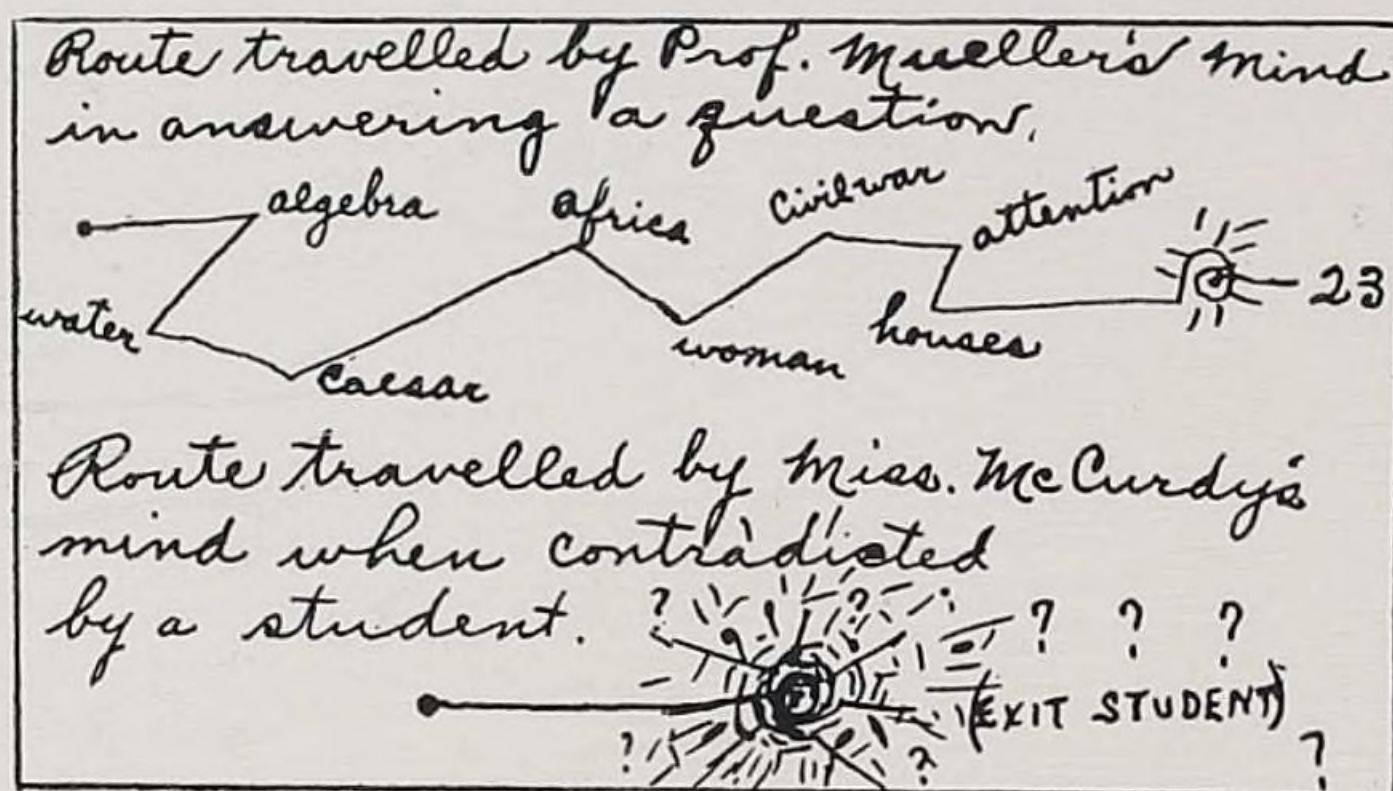 Route travelled by Prof. Mueller's mind
in answering a question.
algebra
africa
Civil war
attention
water
caesar
woman
houses
23
Route travelled by Miss. McCurdy's
mind when contradicted
by a student.
? ?
? ? ?
(EXIT STUDENT)
? ? ?